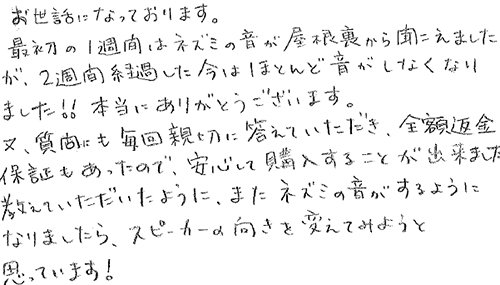 お世話になっております。
最初の1週間はネズミの音が屋根裏から聞こえました
が、2週間経過した今はほとんど音がしなくなり
ました!!本当にありがとうございます。
又、質問にも毎回親切に答えていただき、全額返金
保証もあったので、安心して購入することが出来ました
教えていただいたように、またネズミの音がするように
なりましたら、スピーカーの向きを変えてみようと
思っています!